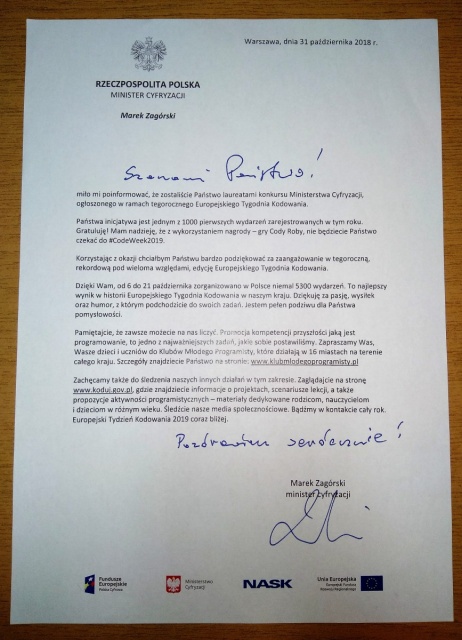 Warszawa, dnia 31 października 2018 r.
RZECZPOSPOLITA POLSKA
MINISTER CYFRYZACJI
Marek Zagórski
Szanowni Państwo!
miło mi poinformować, że zostaliście Państwo laureatami konkursu Ministerstwa Cyfryzacji,
ogłoszonego w ramach tegorocznego Europejskiego Tygodnia Kodowania.
Państwa inicjatywa jest jednym z 1000 pierwszych wydarzeń zarejestrowanych w tym roku.
Gratuluję! Mam nadzieję, że z wykorzystaniem nagrody – gry Cody Roby, nie będziecie Państwo
czekać do #CodeWeek2019.
Korzystając z okazji chciałbym Państwu bardzo podziękować za zaangażowanie w tegoroczną,
rekordową pod wieloma względami, edycję Europejskiego Tygodnia Kodowania.
Dzięki Wam, od 6 do 21 października zorganizowano w Polsce niemal 5300 wydarzeń. To najlepszy
wynik w historii Europejskiego Tygodnia Kodowania w naszym kraju. Dziękuję za pasję, wysiłek
oraz humor, z którym podchodzicie do swoich zadań. Jestem pełen podziwu dla Państwa
pomysłowości.
Pamiętajcie, że zawsze możecie na nas liczyć. Promocja kompetencji przyszłości jaką jest
programowanie, to jedno z najważniejszych zadań, jakie sobie postawiliśmy. Zapraszamy Was,
Wasze dzieci i uczniów do Klubów Młodego Programisty, które działają w 16 miastach na terenie
całego kraju. Szczegóły znajdziecie Państwo na stronie: www.klubmlodegoprogramisty.pl
Zachęcamy także do śledzenia naszych innych działań w tym zakresie. Zaglądajcie na stronę
www.koduj.gov.pl, gdzie znajdziecie informacje o projektach, scenariusze lekcji, a także
propozycje aktywności programistycznych – materiały dedykowane rodzicom, nauczycielom
i dzieciom w różnym wieku. Śledźcie nasze media społecznościowe. Bądźmy w kontakcie cały rok.
Europejski Tydzień Kodowania 2019 coraz bliżej.
Pozdrawiam serdecznie!
Marek Zagórski
minister cyfryzacji
Fundusze
Europejskie
Polska Cyfrowa
Ministerstwo
Cyfryzacji
NASK
Unia Europejska
Europejski Fundusz
Rozwoju Regionalnego